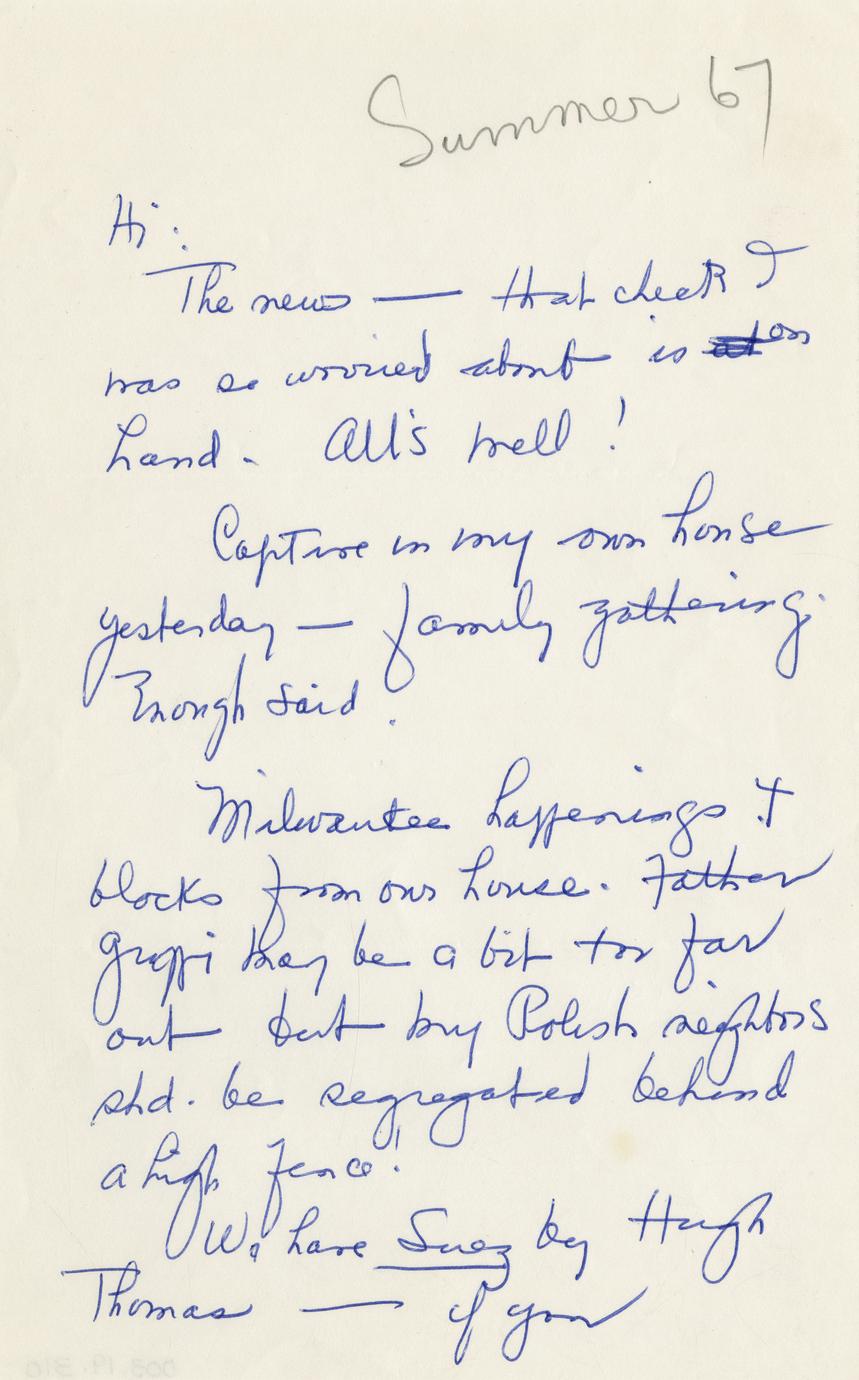 Summer 67
Hi:
The news — that check I
was so worried about is on
hand. All's well!
Captive in my own house
yesterday — family gathering.
Enough said.
Milwaukee happenings 4
blocks from our house. Father
Groppi may be a bit too far
out but my Polish neighbors
shd. be segregated behind
a high fence!
We have Suez by Hugh
Thomas — if you